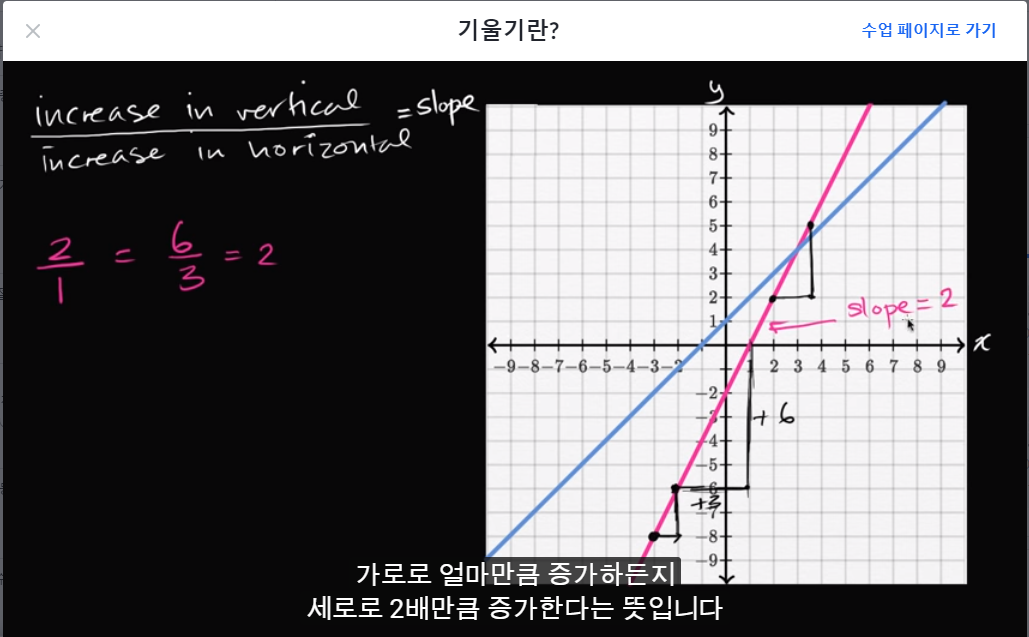 기울기란?
수업 페이지로 가기
increase in vertical
increase in horizontal
= slope
2/1 = 6/3 = 2
y
9
8
7
6
5
4
3
2
1
slope = 2
x
-9 -8 -7 -6 -5 -4 -3 -2 1 2 3 4 5 6 7 8 9
-2
-3
+6
-4
-5
-6
+3
-7
-8
-9
가로로 얼마만큼 증가하든지
세로로 2배만큼 증가한다는 뜻입니다